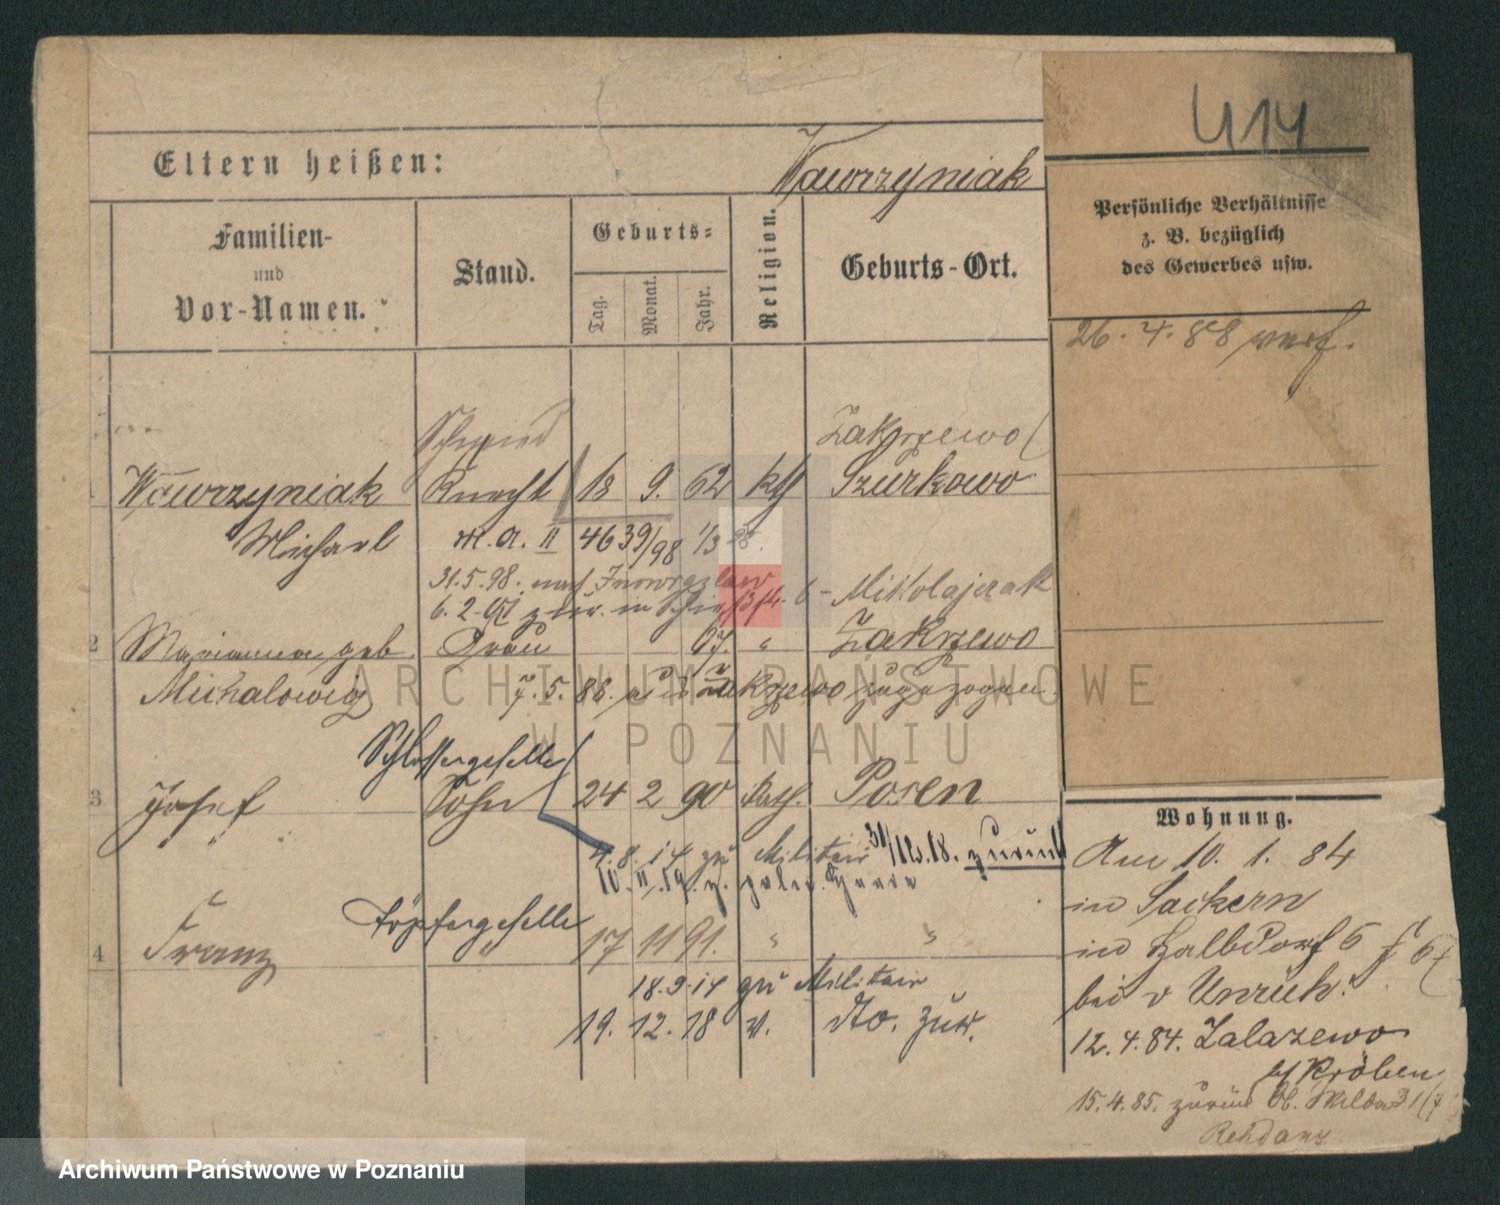 U14
Eltern heißen:
Wawrzyniak
Familien-
und
Vor-Namen.
Stand.
Geburts-
Tag.
Monat.
Jahr.
Religion.
Geburts-Ort.
Persönliche Verhältnisse
z. B. bezüglich
des Gewerbes usw.
26. 4. 88 verh.
Schmied
Zakrzewo
1 Wawrzyniak Knecht 18 9. 62 kth Szurkowo
Michael
m. a. II 46 39/98 1/3
31.5.98. nach Inowrazlaw
6. 2. zur. in
Mikolajczak
2 Marianna geb. Frau 67. " Zakrzewo
Michalowicz 7. 5. 88. aus Zakrzewo zugezogen
Schlossergeselle
3 Josef Sohn 24 2 90 kath. Posen
4. 8. 14 zu Militair 31/12.18. zurück
10. 11. 19. z. poln. Heere
Töpfergeselle
4 Franz " 17 11 91. " "
18. 9. 14 zu Militair
19. 12. 18 v. dto. zur.
Wohnung.
Am 10. 1. 84
in Sackern
in Halbdorf 6
bei v Unruh.
12. 4. 84. Zalazewo
b/ Kröben
15. 4. 85. zurück Ob. Wilda 31/
Rehdanz
Archiwum Państwowe w Poznaniu
ARCHIWUM PAŃSTWOWE
W POZNANIU